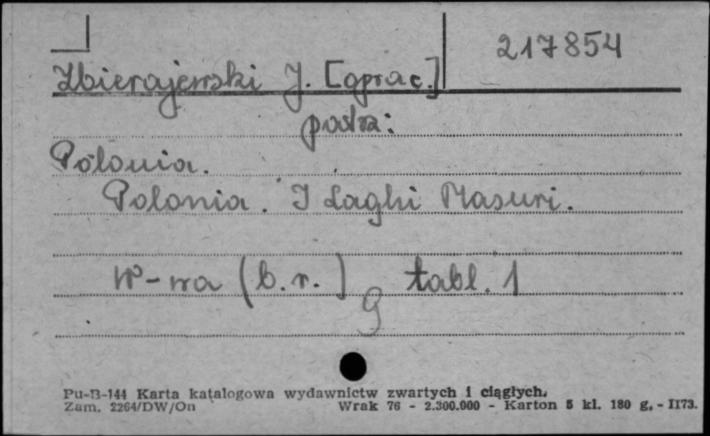 217854
Zbierajewski J. [oprac.]
patrz:
Polonia.
Polonia. I Laghi Masuri.
W-wa (b.r.) tabl. 1
g
Pu-B-144 Karta katalogowa wydawnictw zwartych i ciągłych.
Zam. 2264/DW/On Wrak 76 - 2.300.000 - Karton 5 kl. 180 g. - II73.